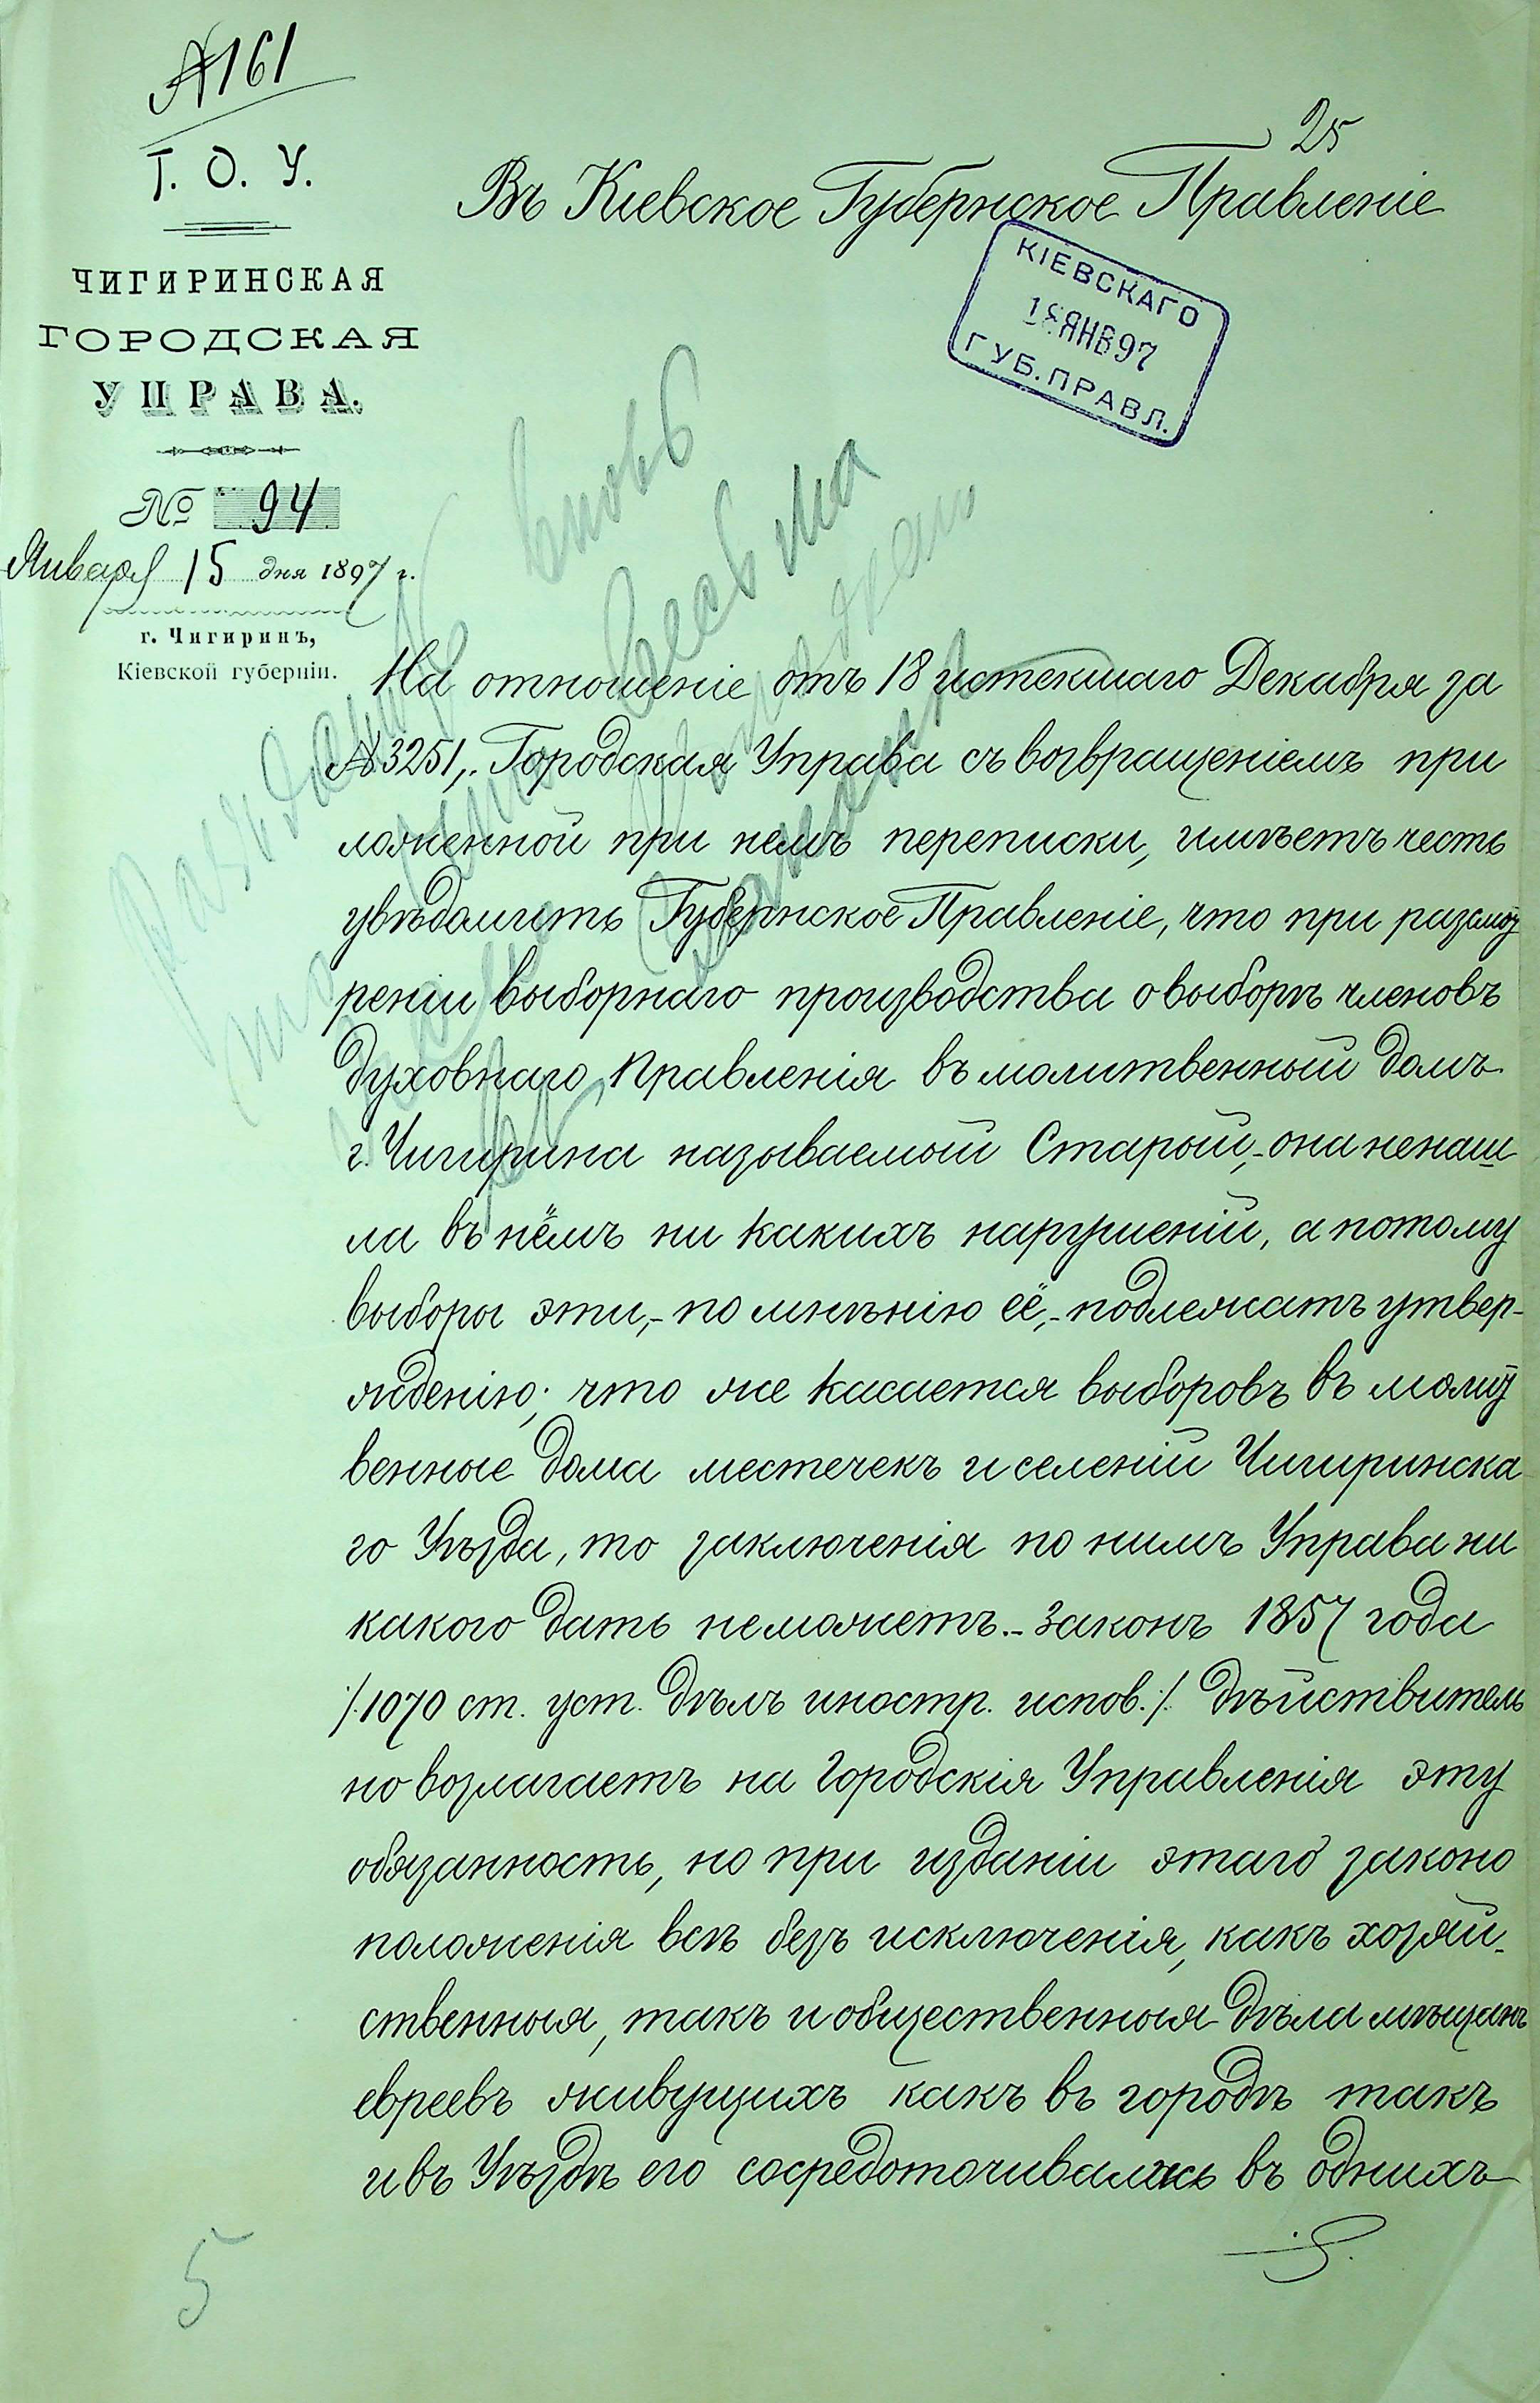 №161
25
Г. О. У.
Въ Кіевское Губернское Правленіе
ЧИГИРИНСКАЯ
ГОРОДСКАЯ
УПРАВА.
КІЕВСКАГО
18 ЯНВ 97
ГУБ. ПРАВЛ.
№ 94
Января 15 дня 1897 г.
г. Чигиринъ,
Кіевской губерніи.
вновь
весьма
На отношеніе отъ 18 истекшаго Декабря за
№3251, Городская Управа съ возвращеніемъ при
ложенной при немъ переписки, имѣетъ честь
увѣдомить Губернское Правленіе, что при разсмот
реніи выборнаго производства о выборѣ членовъ
духовнаго Правленія въ молитвенный домъ
г. Чигирина называемый Старой,- она ненаш
ла въ нёмъ ни какихъ нарушеній, а потому
выборы эти,- по мнѣнію её,- подлежатъ утвер-
жденію; что же касается выборовъ въ молит
венные дома местечекъ и селеній Чигиринска
го Уѣзда, то заключенія по нимъ Управа ни
какого дать неможетъ.- Законъ 1857 года
/.1070 ст. уст. дѣлъ иностр. испов./. дѣйствитель
но возлагаетъ на Городскія Управленія эту
обязанность, но при изданіи этаго законо
положенія всѣ безъ исключенія, какъ хозяй-
ственныя, такъ и общественныя дѣла мѣщанъ
евреевъ живущихъ какъ въ городѣ такъ
и въ Уѣздѣ его сосредоточивались въ однихъ
5